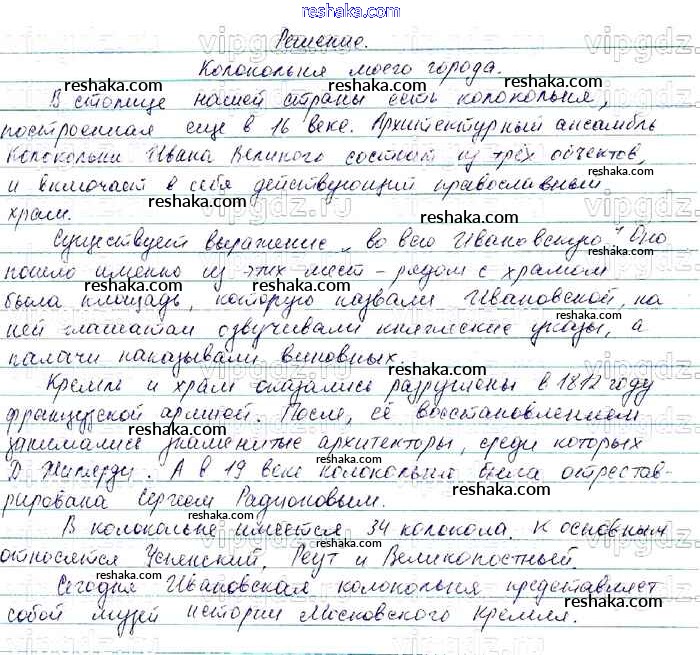 reshaka.com
Решение.
Колокольня моего города.
В столице нашей страны есть колокольня,
построенная еще в 16 веке. Архитектурный ансамбль
Колокольни Ивана Великого состоит из трёх объектов,
и включает в себя действующий православный
храм.
Существует выражение „во всю Ивановскую“ Оно
пошло именно из этих мест - рядом с храмом
была площадь, которую назвали Ивановской, на
ней глашатаи озвучивали княжеские указы, а
палачи наказывали виновных.
Кремль и храм оказались разрушены в 1812 году
французской армией. После, её восстановлением
занимались знаменитые архитекторы, среди которых
Д. Жилярди. А в 19 веке колокольня была отрестав-
рирована Сергеем Радионовым.
В колокольне имеется 34 колокола. К основным
относятся Успенский, Реут и Великопостный.
Сегодня Ивановская колокольня представляет
собой музей истории Московского Кремля.